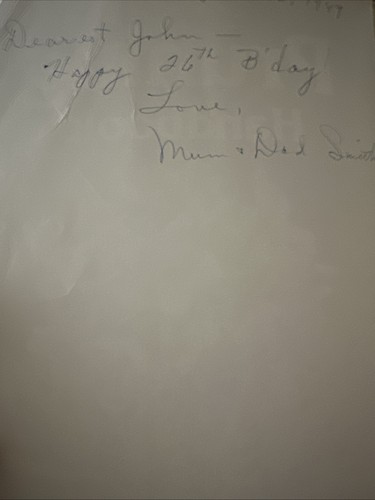 1989
Dearest John —
Happy 26th B'day
Love,
Mum & Dad Smith